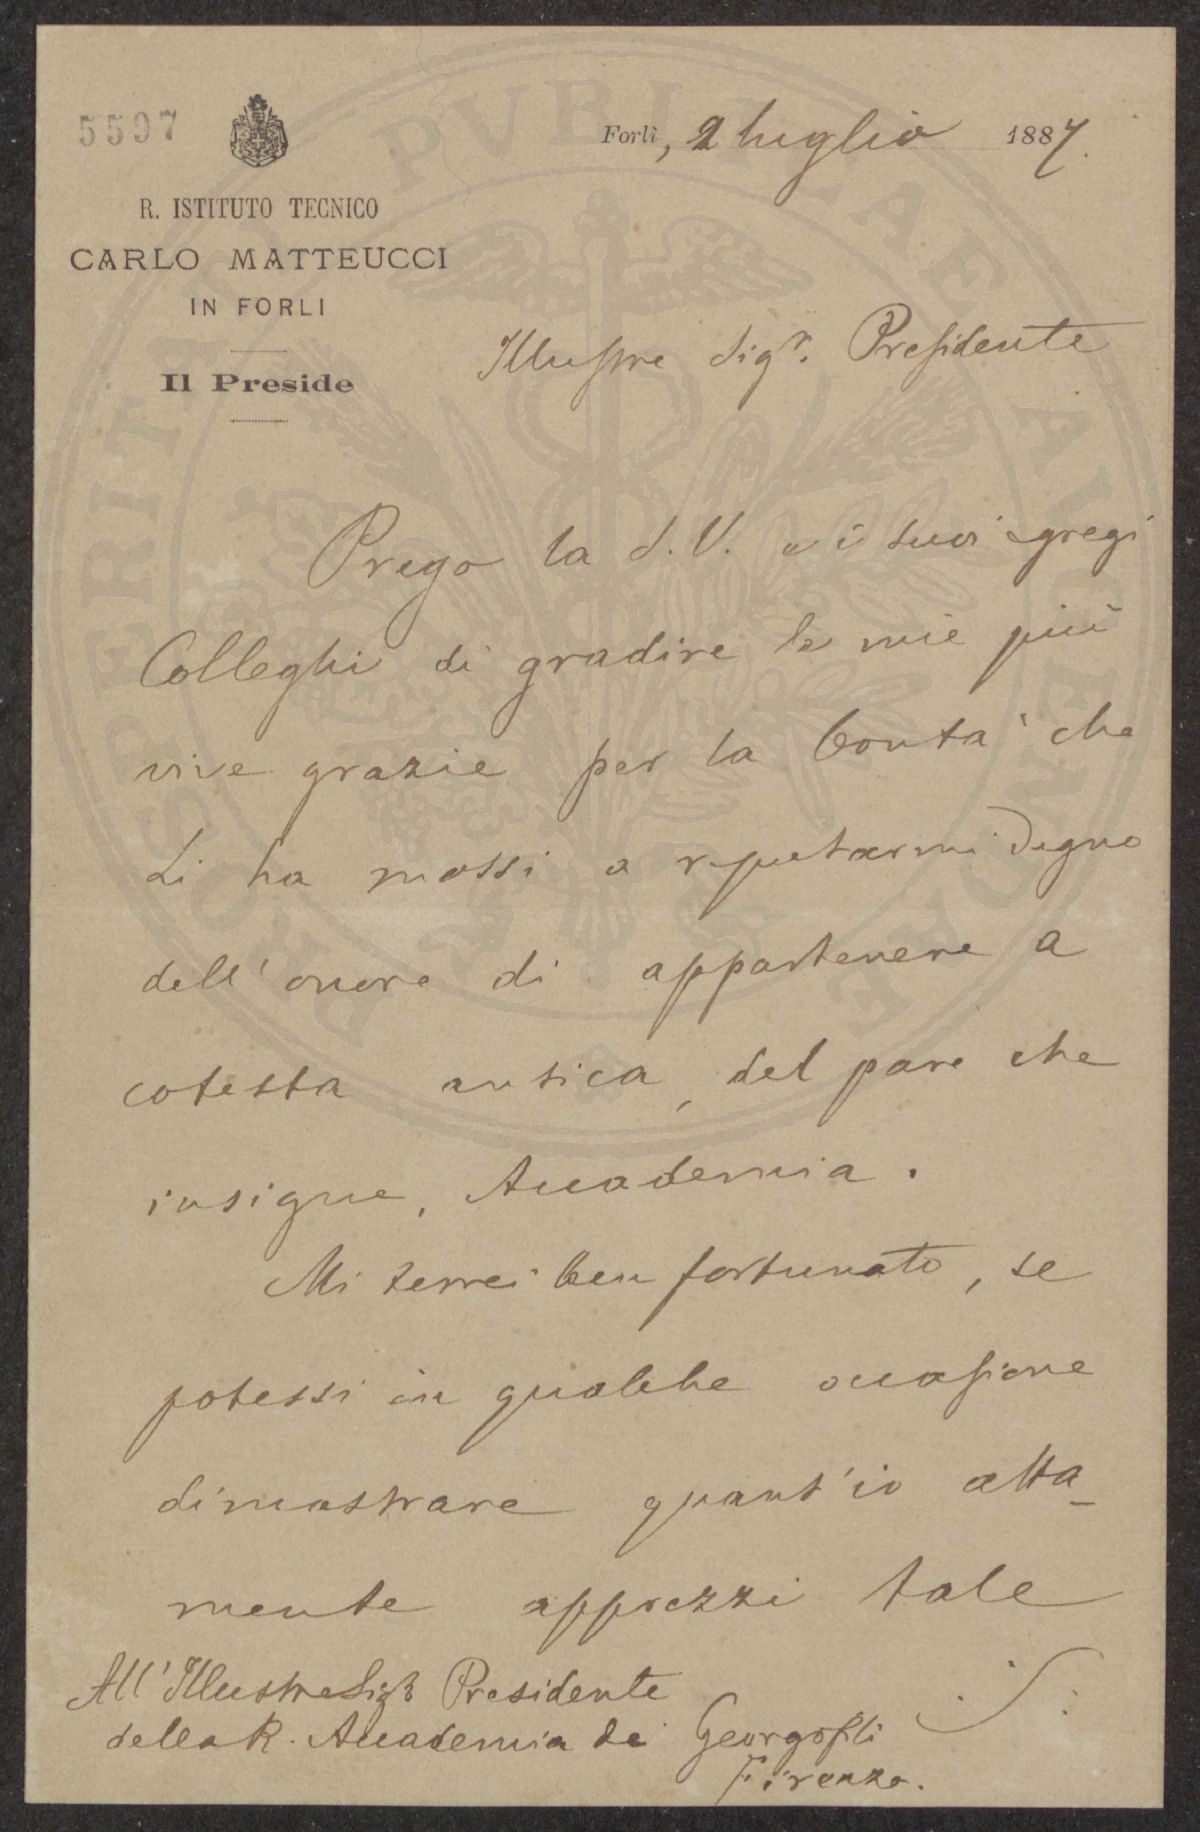 5597
Forlì, 2 luglio 1887.
R. ISTITUTO TECNICO
CARLO MATTEUCCI
IN FORLI
Il Preside
Illustre Sigr. Presidente
Prego la S.V. e i suoi egregi
Colleghi di gradire le mie più
vive grazie per la bontà che
Li ha mossi a reputarmi degno
dell'onore di appartenere a
cotesta antica, del pari che
insigne, Accademia.
Mi terrei ben fortunato, se
potessi in qualche occasione
dimostrare quant'io alta-
mente apprezzi tale
All'Illustre Sigr Presidente
della R. Accademia dei Georgofili
Firenze.
PROSPERITATI PUBLICAE AUGENDAE